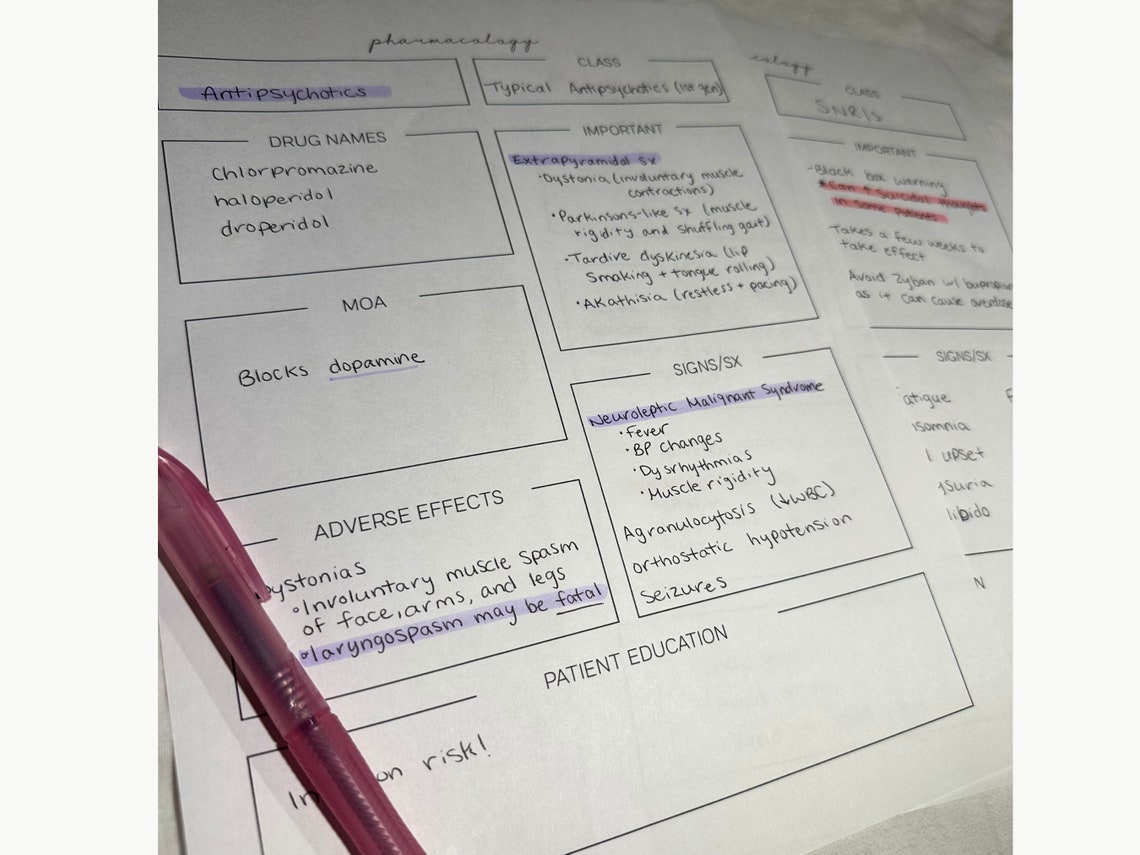 pharmacology
Antipsychotics
CLASS
Typical Antipsychotics (1st gen)
DRUG NAMES
chlorpromazine
haloperidol
droperidol
IMPORTANT
Extrapyramidal sx
•Dystonia (involuntary muscle
contractions)
•Parkinsons-like sx (muscle
rigidity and shuffling gait)
•Tardive dyskinesia (lip
smaking + tongue rolling)
•Akathisia (restless + pacing)
MOA
Blocks dopamine
SIGNS/SX
Neuroleptic Malignant Syndrome
•Fever
•BP changes
•Dysrhythmias
•Muscle rigidity
Agranulocytosis (↓WBC)
orthostatic hypotension
Seizures
ADVERSE EFFECTS
Dystonias
•Involuntary muscle spasm
of face, arms, and legs
•laryngospasm may be fatal
PATIENT EDUCATION
on risk!
CLASS
SNRIs
IMPORTANT
-Black box warning
*Can ↑ suicidal thoughts
in some patients
Takes a few weeks to
take effect
Avoid Zyban w/
as it can cause
SIGNS/SX
atigue
isomnia
upset
libido
N